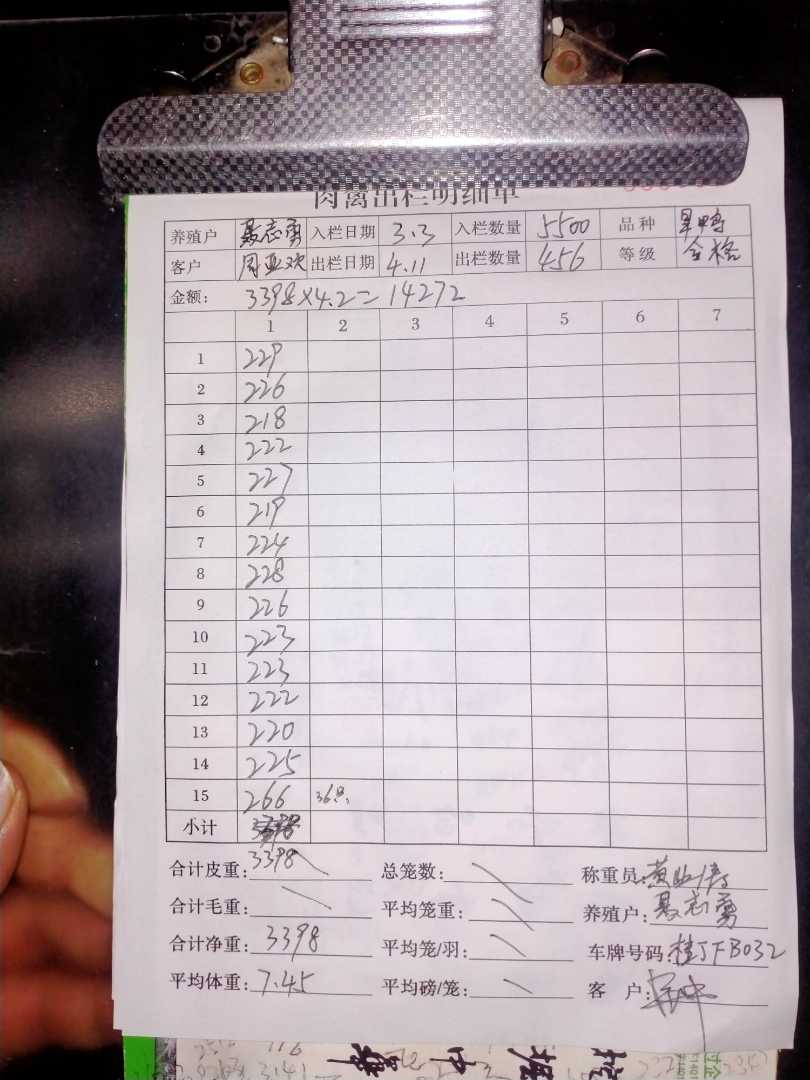 肉禽出栏明细单
养殖户 聂志勇 入栏日期 3.3 入栏数量 5500 品种 旱鸭
客户 周亚欢 出栏日期 4.11 出栏数量 456 等级 合格
金额: 3398×4.2=14272
1 2 3 4 5 6 7
1 229
2 226
3 218
4 222
5 227
6 219
7 224
8 228
9 226
10 223
11 223
12 222
13 220
14 225
15 266 36只
小计
合计皮重: 3398 总笼数: 称重员:
合计毛重: 平均笼重: 养殖户: 聂志勇
合计净重: 3398 平均笼/羽: 车牌号码: 桂JFB032
平均体重: 7.45 平均磅/笼: 客户: